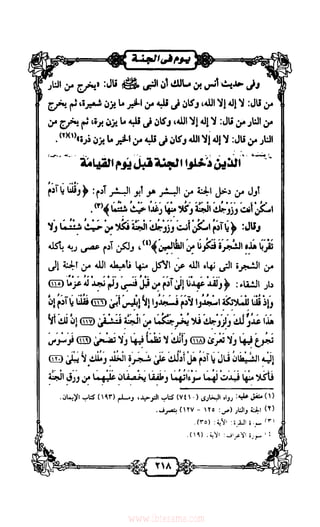 يوم في الجنة
وفى حديث أنس بن مالك أن النبى ﷺ قال: «يخرج من النار
من قال: لا إله إلا الله، وكان فى قلبه من الخير ما يزن شعيرة، ثم يخرج
من النار من قال: لا إله إلا الله، وكان فى قلبه من الخير ما يزن برة، ثم يخرج من
النار من قال: لا إله إلا الله وكان فى قلبه من الخير ما يزن ذرة»(١)(٢).
الذين دخلوا الجنة قبل يوم القيامة
أول من دخل الجنة من البشر هو أبو البشر آدم: ﴿وَقُلْنَا يَا آدَمُ
اسْكُنْ أَنتَ وَزَوْجُكَ الْجَنَّةَ وَكُلا مِنْهَا رَغَدًا حَيْثُ شِئْتُمَا﴾(٣).
وقال: ﴿وَيَا آدَمُ اسْكُنْ أَنتَ وَزَوْجُكَ الْجَنَّةَ فَكُلا مِنْ حَيْثُ شِئْتُمَا وَلا
تَقْرَبَا هَذِهِ الشَّجَرَةَ فَتَكُونَا مِنَ الظَّالِمِينَ﴾(٤)، ولكن آدم عصى ربه بأكله
من الشجرة التى نهاه الله عن الأكل منها فأهبطه الله من الجنة إلى
دار الشقاء: ﴿وَلَقَدْ عَهِدْنَا إِلَىٰ آدَمَ مِن قَبْلُ فَنَسِيَ وَلَمْ نَجِدْ لَهُ عَزْمًا (١١٥)
وَإِذْ قُلْنَا لِلْمَلائِكَةِ اسْجُدُوا لآدَمَ فَسَجَدُوا إِلاَّ إِبْلِيسَ أَبَىٰ (١١٦) فَقُلْنَا يَا آدَمُ إِنَّ
هَذَا عَدُوٌّ لَّكَ وَلِزَوْجِكَ فَلا يُخْرِجَنَّكُمَا مِنَ الْجَنَّةِ فَتَشْقَىٰ (١١٧) إِنَّ لَكَ أَلاَّ
تَجُوعَ فِيهَا وَلا تَعْرَىٰ (١١٨) وَأَنَّكَ لا تَظْمَأُ فِيهَا وَلا تَضْحَىٰ (١١٩) فَوَسْوَسَ
إِلَيْهِ الشَّيْطَانُ قَالَ يَا آدَمُ هَلْ أَدُلُّكَ عَلَىٰ شَجَرَةِ الْخُلْدِ وَمُلْكٍ لاَّ يَبْلَىٰ (١٢٠)
فَأَكَلا مِنْهَا فَبَدَتْ لَهُمَا سَوْءَاتُهُمَا وَطَفِقَا يَخْصِفَانِ عَلَيْهِمَا مِن وَرَقِ الْجَنَّةِ
(١) متفق عليه: رواه البخارى (٧٤١٠) كتاب التوحيد، ومسلم (١٩٣) كتاب الإيمان.
(٢) الجنة والنار (ص: ١٢٥ - ١٢٧) بتصرف.
(٣) سورة البقرة: الآية: (٣٥).
(٤) سورة الأعراف: الآية: (١٩).
٢١٨